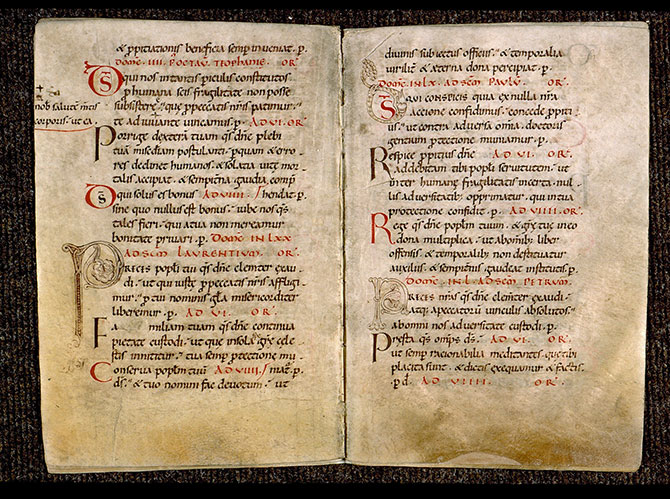 & ꝓpitiationis beneficia semp inueniat. p.
DOMĒ. IIII. P̄ OCTAV̄. TEOPHANIE. OR̄
DS̄ Qui nos in tantis piculis constitutos
ꝓ humana scis fragilitate non posse
subsistere; ut que ꝓ peccatis nr̄is patimur
nob salutē m̄tis
corporis. ut ea
te adiuuante uincamus. p. AD VI. OR̄
Porrige dexterā tuam qs̄ dn̄e plebi
tuā misēdiam postulanti. ꝑ quam & erro
res declinet humanos, & solatia uite mor
talis accipiat, & sempit̄na gaudia comp
DS̄ Qui solus es bonus AD VIIII. / hendat. p.
sine quo nullus est bonus. iube nos qs̄
tales fieri. qui a tua non mereamur
bonitate priuari. p. DOMĒ IN LXX
AD SCM̄ LAURENTIUM. OR̄
Preces popli tui qs̄ dn̄e clemt̄er exau
di. ut qui iuste ꝓ peccatis nr̄is affligi
mur, ꝓ tui nominis gl̄a misericorditer
liberemur. p. AD VI. OR̄
Familiam tuam qs̄ dn̄e continua
pietate custodi. ut que in sola spe gr̄e cele
stis innititur. tua semp ꝓtectione mu
Conserua poplm̄ tuū AD VIIII. / niat. p.
ds̄. & tuo nomini fac deuotum. ut
diuinis subiectus officiis. & temporalia
uirilit̄ & aeterna dona percipiat. p.
DOMĒ. IN LX. AD SCM̄ PAULV̄. OR̄
DS̄ Qui conspicis quia ex nulla nr̄a
actione confidimus. concede ꝓpiti
us. ut contra aduersa omīa. doctoris
gentium ꝓtectione muniamur. p.
Respice ꝓpitius dn̄e AD VI. OR̄
ad debitam tibi popli seruitutem. ut
inter humanę fragilitatis incerta. nul
lis aduersitatib; opprimatur. qui in tua
protectione confidit. p. AD VIIII. OR̄
Rege qs̄ dn̄e poplm̄ tuum. & gr̄e tuę in eo
dona multiplica. ut ab omīb; liber
offensis, & temporalib; non destituatur
auxiliis, & sempit̄nis gaudeat institutis. p.
DOMĒ. IN. L. AD SCM̄ PETRUM.
Preces nr̄as qs̄ dn̄e clemt̄er exaudi.
atq; a peccatorū uinculis absolutos.
ab omni nos aduersitate custodi. p.
Presta qs̄ omps̄ ds̄. AD VI. OR̄
ut semp racionabilia meditantes. que tibi
placita sunt. & dictis exequamur & factis.
p. d. AD VIIII. OR̄